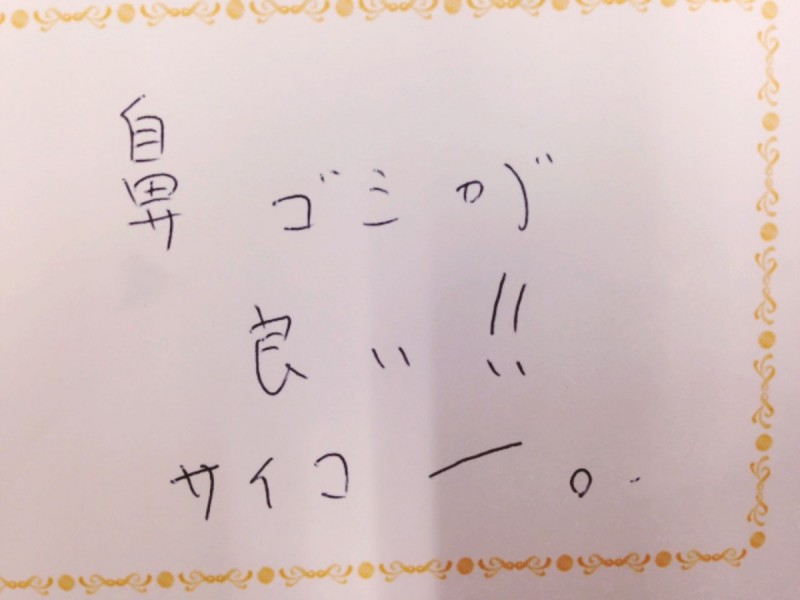 鼻ゴミが
良い!!
サイコー。